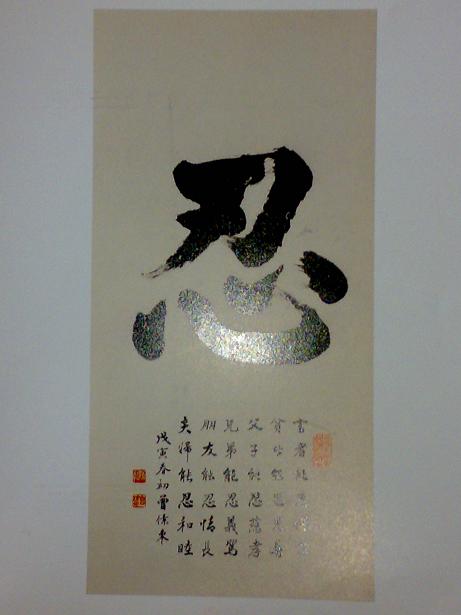 忍
富者能忍保家
貧者能忍免辱
父子能忍慈孝
兄弟能忍義篤
朋友能忍情長
夫婦能忍和睦
戊寅春初曾